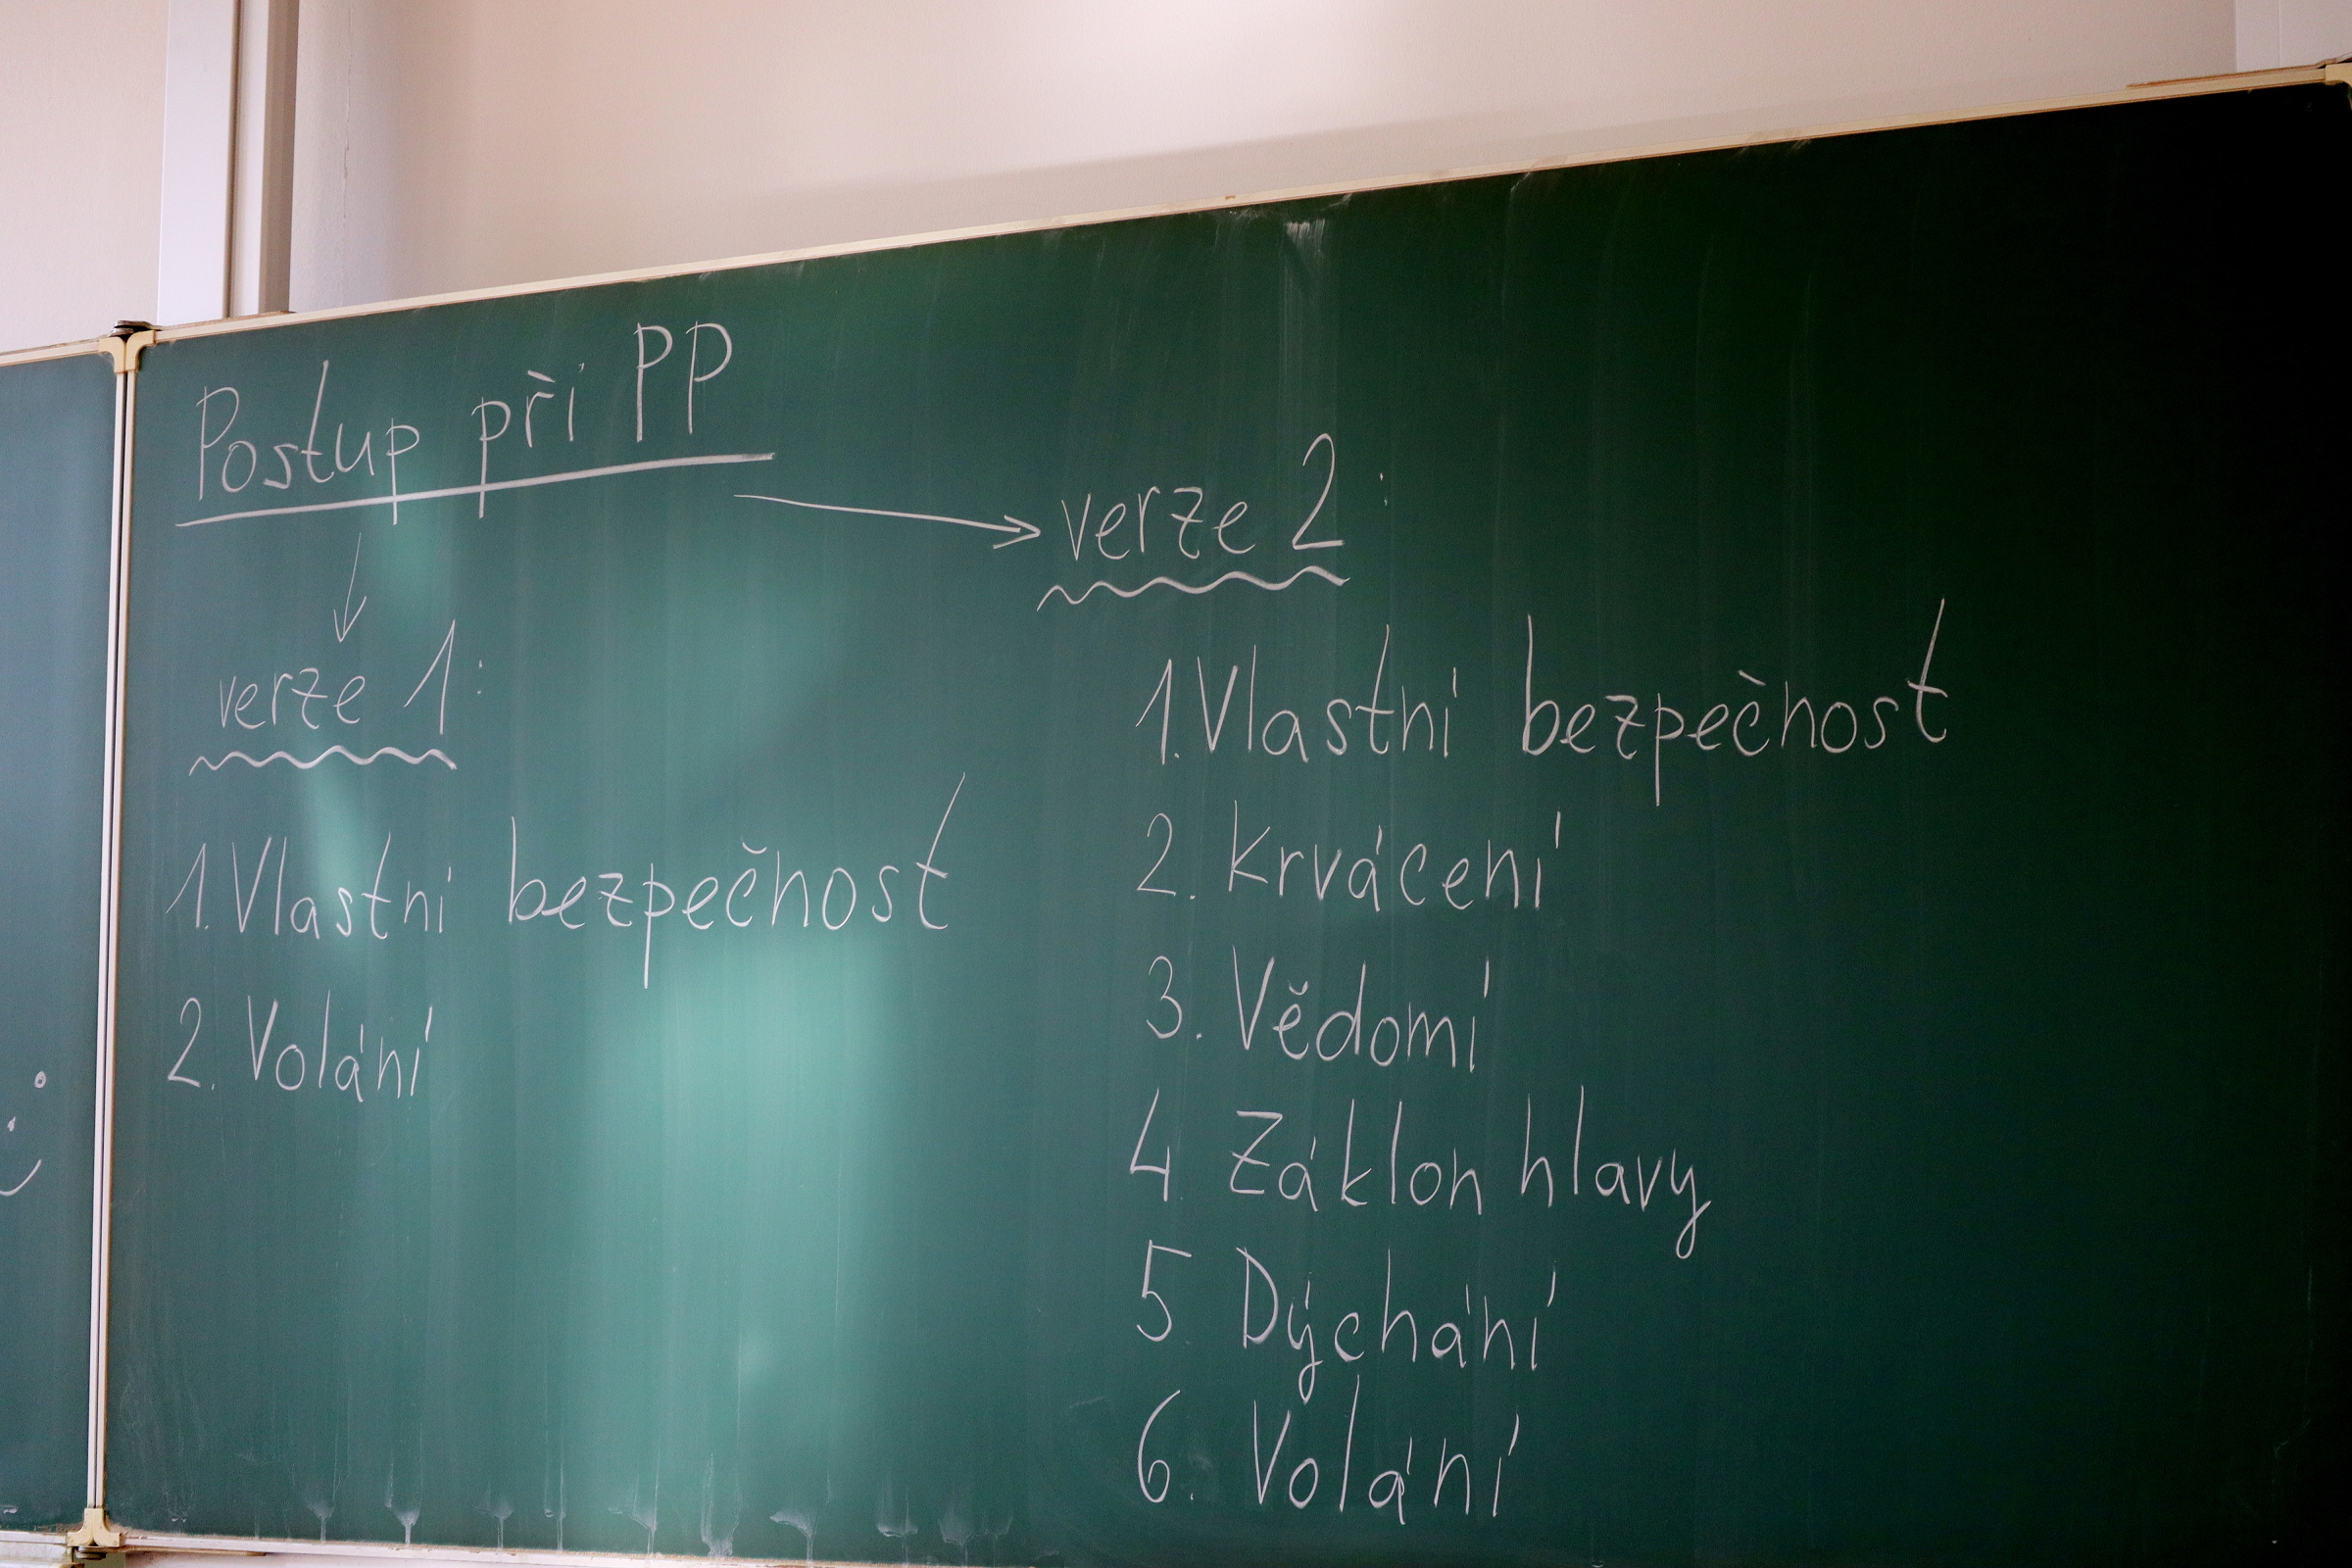 Postup při PP
verze 1:
1. Vlastní bezpečnost
2. Volání
verze 2:
1. Vlastní bezpečnost
2. Krvácení
3. Vědomí
4. Záklon hlavy
5 Dýchání
6. Volání